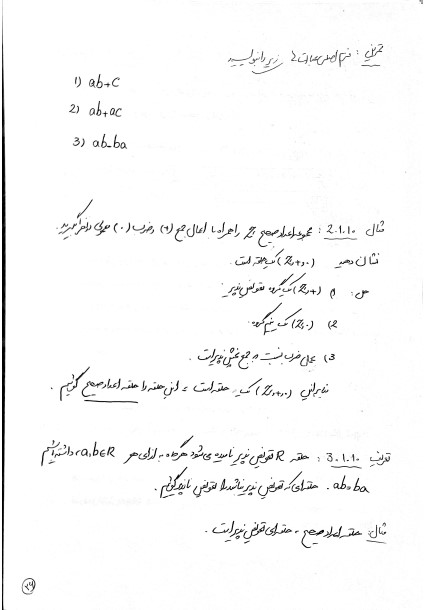 تمرین : فرم اصلی عبارت های زیر را بنویسید
1) ab+c
2) ab+ac
3) ab-ba
مثال 2.1.10 : مجموعه اعداد صحیح Z را همراه با اعمال جمع (+) و ضرب (·) معمولی در نظر بگیرید.
نشان دهید (Z,+,·) یک حلقه است.
حل : 1) (Z,+) یک گروه تعویض پذیر
2) (Z,·) یک نیم گروه
3) عمل ضرب نسبت به جمع پخش پذیر است.
بنابراین (Z,+,·) یک حلقه است به این حلقه را حلقه اعداد صحیح گوئیم .
تعریف 3.1.10 : حلقه R تعویض پذیر نامیده می شود هرگاه به ازای هر a,b∈R داشته باشیم
ab=ba . حلقه ای که تعویض پذیر نباشد را تعویض ناپذیر گوئیم.
مثال: حلقه اعداد صحیح ، حلقه ای تعویض پذیر است .